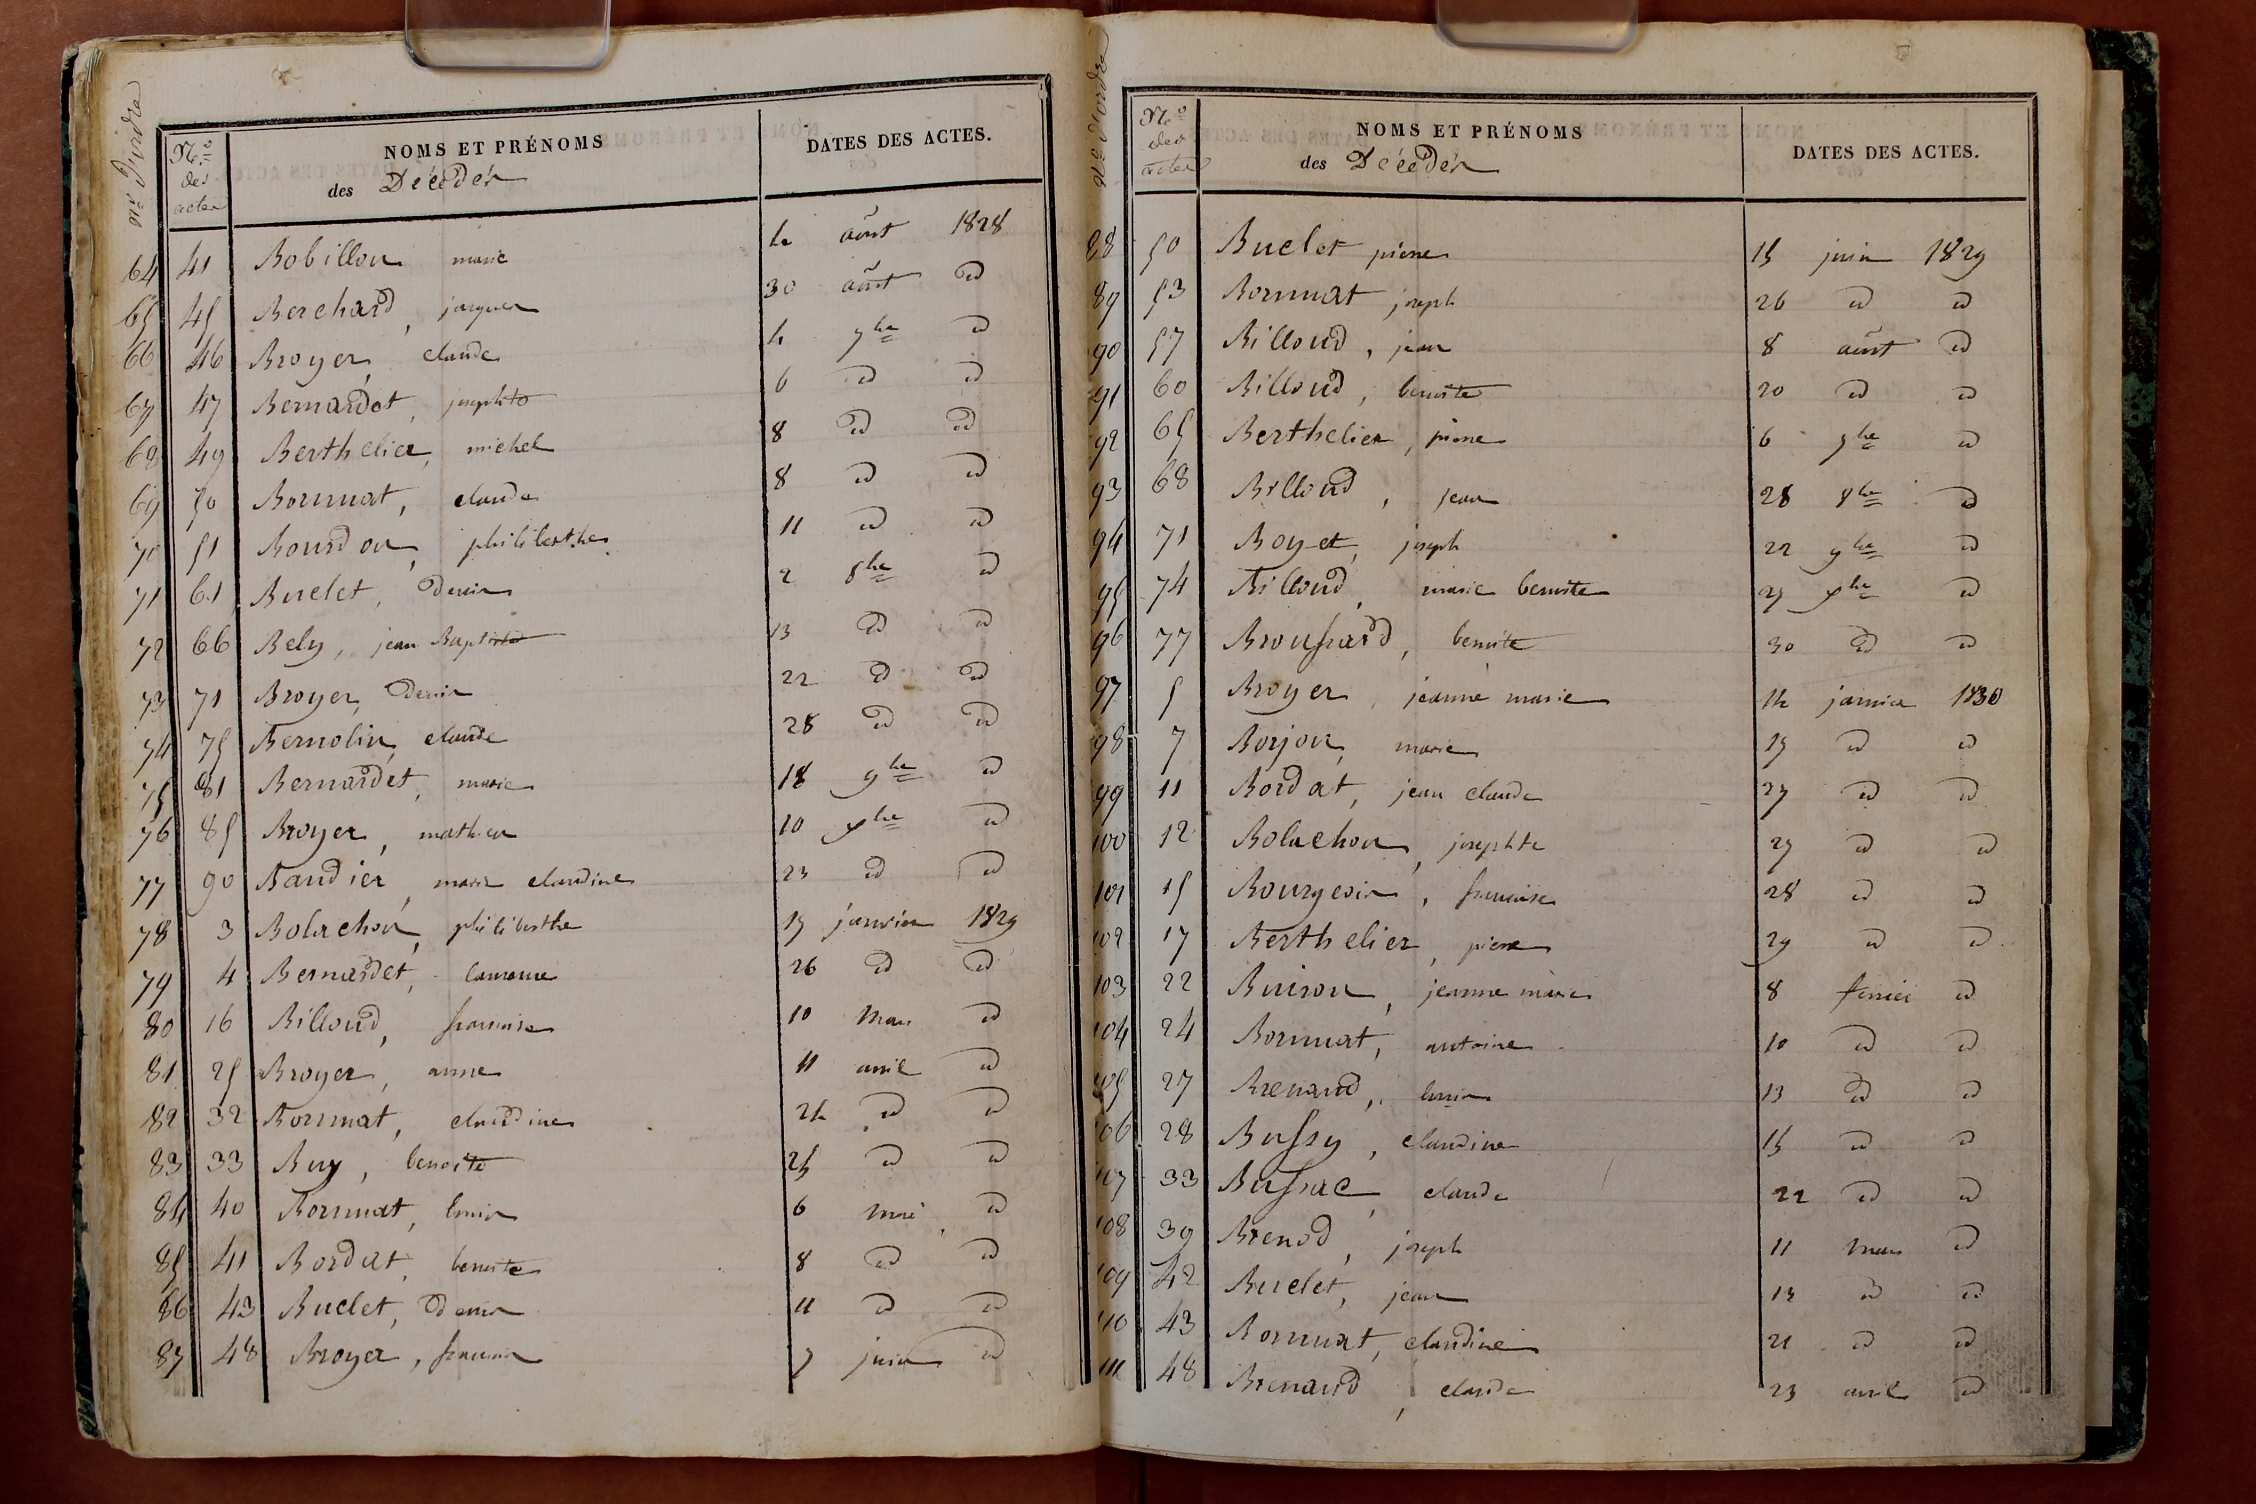 nos d'ordre
Nos des actes
NOMS ET PRÉNOMS
des Décédés
DATES DES ACTES.
64 41 Bobillon marie 4 août 1828
65 45 Berchard, jacques 30 août id
66 46 Broyer, claude 4 7bre id
67 47 Bernardot, josephte 6 id id
68 49 Berthelier, michel 8 id id
69 50 Bonnat, claude 8 id id
70 51 Bourdon, philiberthe 11 id id
71 61 Buclet, Denis 2 8bre id
72 66 Bely, jean Baptiste 13 id id
73 71 Broyer, Denis 22 id id
74 75 Bernolin, claude 28 id id
75 81 Bernardet, marie 18 9bre id
76 85 Broyer, mathieu 10 xbre id
77 90 Baudier, marie claudine 23 id id
78 3 Bolachon, philiberthe 15 janvier 1829
79 4 Bernardet, 26 id id
80 16 Billoud, francoise 10 Mars id
81 25 Broyer, anne 11 avril id
82 32 Bonnat, claudine 24 id id
83 33 Buy, benoite 25 id id
84 40 Bonnat, louis 6 mai id
85 41 Bordat, benoite 8 id id
86 43 Buclet, Denis 11 id id
87 48 Broyer, francois 7 juin id
No d'ordre
Nos des actes
NOMS ET PRÉNOMS
des Décédés
DATES DES ACTES.
88 50 Buclet pierre 15 juin 1829
89 53 Bonnat joseph 26 id id
90 57 Billoud, jean 8 août id
91 60 Billoud, benoite 20 id id
92 65 Berthelier, pierre 6 7bre id
93 68 Billoud, jean 28 8bre id
94 71 Boyet, joseph 22 9bre id
95 74 Billoud, marie benoite 27 xbre id
96 77 Broussard, benoite 30 id id
97 5 Broyer, jeanne marie 14 janvier 1830
98 7 Borjon, marie 15 id id
99 11 Bordat, jean claude 27 id id
100 12 Bolachon, josephte 27 id id
101 15 Bourgeois, francoise 28 id id
102 17 Berthelier, pierre 29 id id
103 22 Buison, jeanne marie 8 fevrier id
104 24 Bonnat, antoine 10 id id
105 27 Brenaud, louis 13 id id
106 28 Bussy, claudine 15 id id
107 33 Bussac, claude 22 id id
108 39 Brenod, joseph 11 mars id
109 42 Buclet, jean 13 id id
110 43 Bonnat, claudine 21 id id
111 48 Brenaud, claude 23 avril id